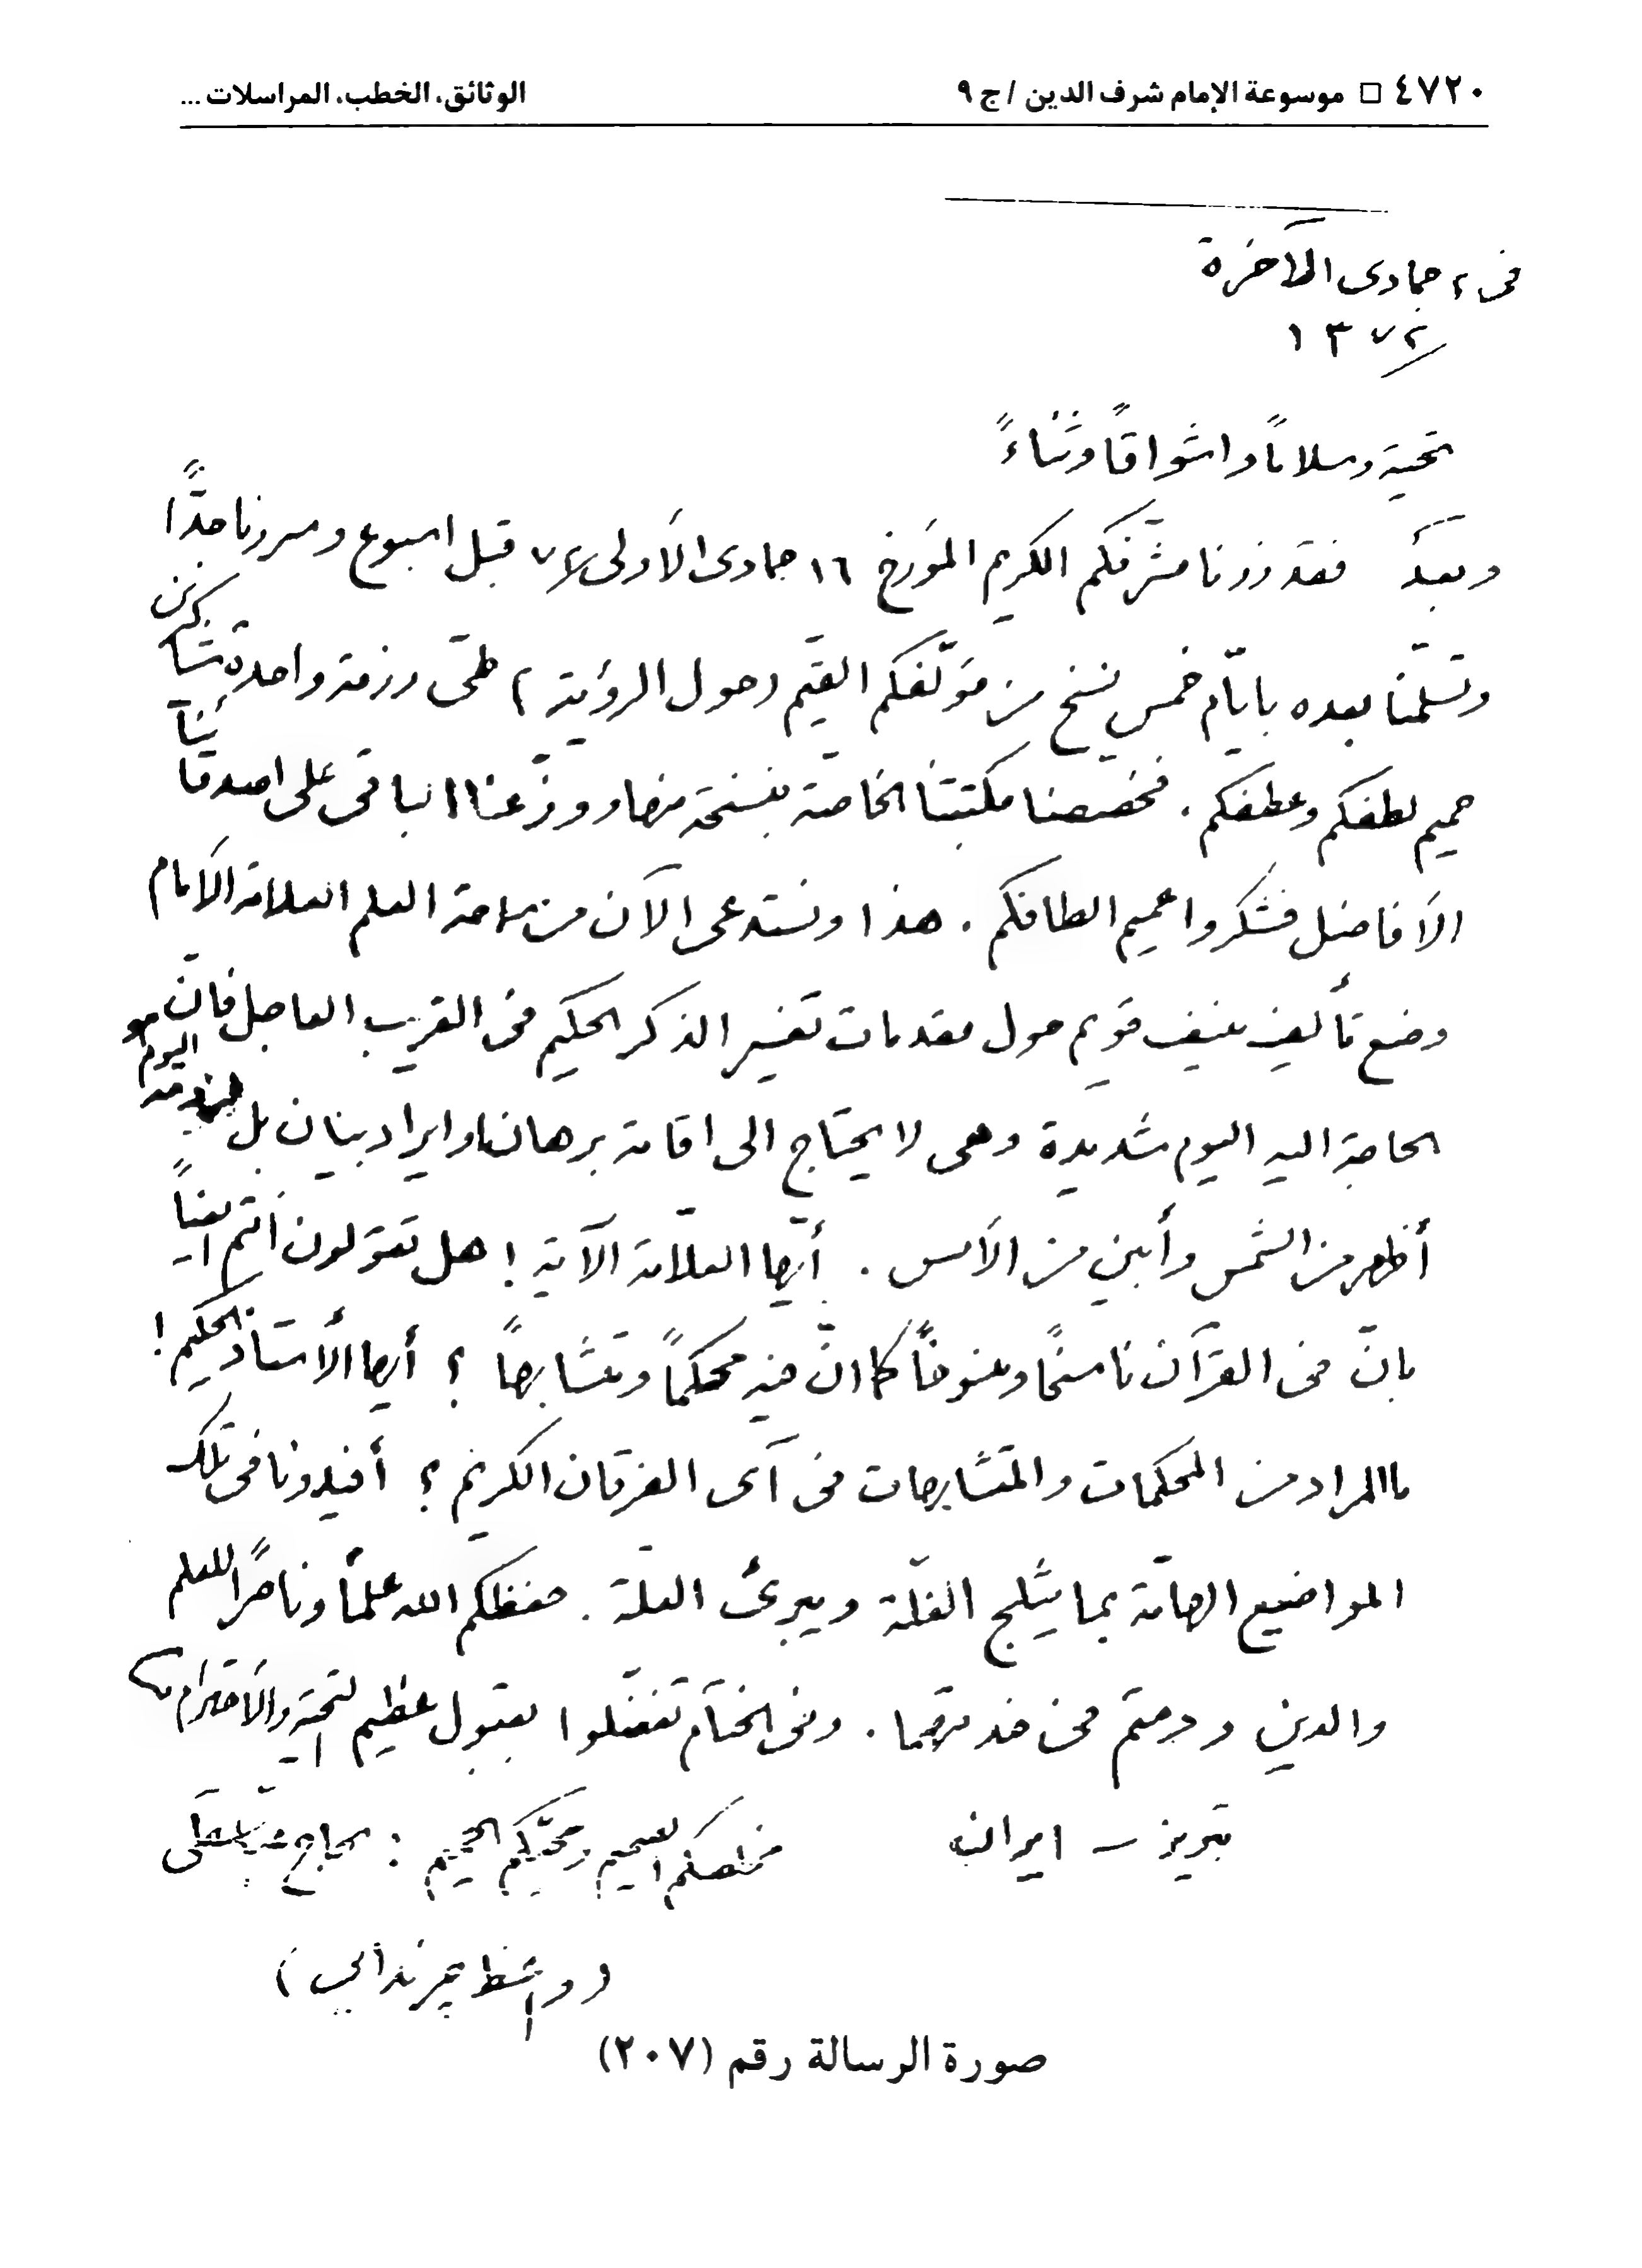 ٤٧٢٠ □ موسوعة الإمام شرف الدين / ج ٩
الوثائق، الخطب، المراسلات ...
في ٢ جمادى الآخرة
١٣٧٢
تحية وسلاماً واشواقاً وثناءً
وبعدُ فقد زرنا مشرّفكم الكريم المؤرخ ١٦ جمادى الأولى ٧٢ قبل اسبوع وسررنا جدّاً
وتسلّمنا بعده بايّام خمس نسخ من مؤلّفكم القيّم (حول الرؤية) طيّ رزمة واحدة شاكرين
عميم لطفكم وعطفكم. فخصصنا مكتبتنا الخاصّة بنسخة منها ووزّعنا الباقي على اصدقائنا
الأفاضل فشكروا عميم الطافكم. هذا ونستدعي الآن من سماحة العلم العلامة الأمام
وضع تأليف منيف قويم حول مقدمات تفسير الذكر الحكيم في القريب العاجل فانّ
الحاجة اليه اليوم شديدة وهي لا يحتاج الى اقامة برهان وايراد بيان بل هو اليوم
أظهر من الشمس وأبين من الأمس. أيّها العلاّمة الآية! هل تقولون أنتم ايضاً
بانّ في القرآن ناسخاً ومنسوخاً كما انّ فيه محكماً ومتشابهاً؟ أيها الأستاذ الحكيم!
ما المراد من المحكمات والمتشابهات في آي الفرقان الكريم؟ أفيدونا في تلك
المواضيع الهامّة بما يثلج الغلّة ويبرئ العلّة. حفظكم الله علماً وناصراً للعلم
والدين ودمتم في خدمتهما. وفي الختام تفضّلوا بقبول عظيم التحية والأحترام
تبريز – ايران
مخلصكم الصميم ومحبّكم الحميم: الحاج
(واعظ چرندابي)
صورة الرسالة رقم (٢٠٧)